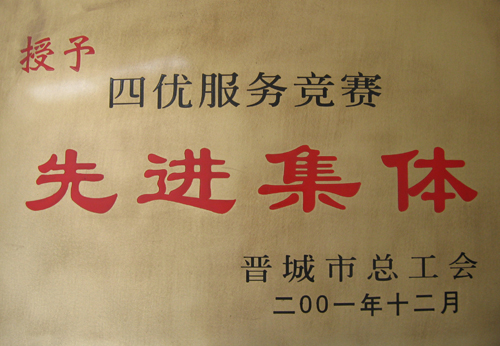 授予
四优服务竞赛
先进集体
晋城市总工会
二00一年十二月